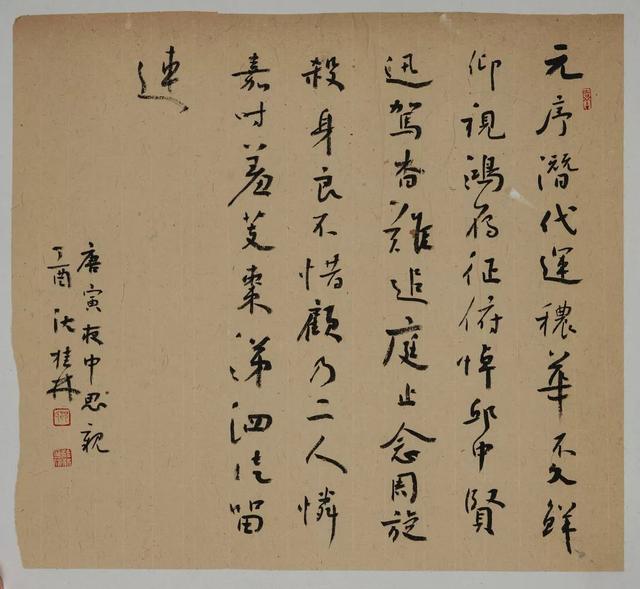 元序潛代運穠華不久鮮
仰視鴻雁征俯悼邱中賢
迅駕杳難追庭止念周旋
殺身良不惜顧乃二人憐
嘉时羞芰棗涕泗徒留
連
唐寅夜中思親
丁酉沈桂林